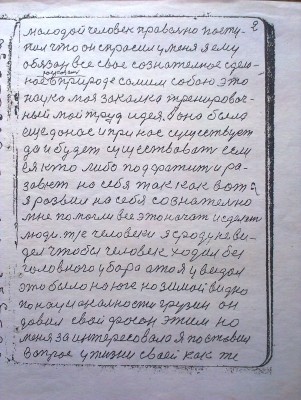 2
молодой человек правочно посту-
пал что он спросил у меня я ему
обязан все свое сознателное сдело-
ное в природе самим собою это
наука моя закалка тренировоч-
ный мой труд идея, она была
еще до нас и при нас существует
да и будет существовать если
ея кто либо подхватит и ра-
завьет на себя так как вот я
я развил на себя сознателно
мне помогли все это начат и сделают
люди. т/е человеки я сроду не ви-
дел чтобы человек ходил без
головного убора а то я уведал
это было на юге но зимой видно
по националности грузин он
давил свой фосон этим но
меня заинтересовал я поставил
вопрос у жизни своей как же